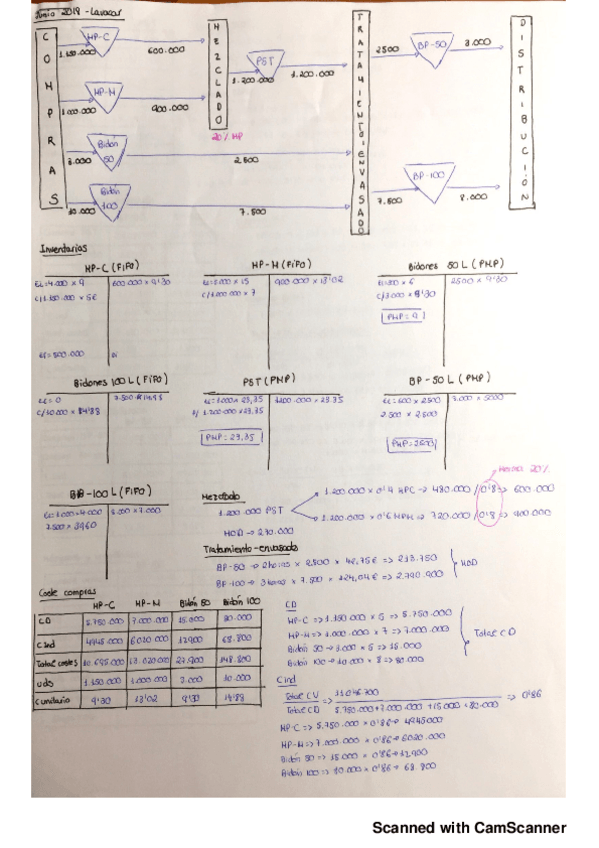 Junio 2019 - Lavacar
COMPRAS
HP-C
1.150.000
600.000
HP-M
1.000.000
900.000
MEZCLADO
20% MP
PST
1.200.000
1.200.000
Bidón 50
3.000
2.500
Bidón 100
10.000
7.500
TRATAMIENTO-ENVASADO
2500
BP-50
3.000
7.500
BP-100
8.000
DISTRIBUCIÓN
Inventarios
MP-C (FIFO)
600.000 x 9'30
C/1.150.000 x 5€
Ef = 500.000
MP-M (FIFO)
900.000 x 13'02
C/1.000.000 x 7
Bidones 50 L (PMP)
2500 x 9'30
C/3.000 x 9'30
PMP = 9
Bidones 100 L (FIFO)
Ei = 0
C/10.000 x 14'88
PST (PMP)
1.200.000 x 23.35
E/ 1.200.000 x 23.35
PMP = 23,35
BP-50 L (PMP)
Ei = 600 x 2500
2.500 x 2.600
BP-100 L (FIFO)
8.000 x 7.000
7.500 x 3960
Mezclado
1.200.000 PST
1.200.000 x 0'4 MPC → 480.000 / 0'8 → 600.000
Merma 20%
1.200.000 x 0'6 MPM → 720.000 / 0'8 → 900.000
MOD → 270.000
Tratamiento-envasado
BP-50 → 2 horas x 2.500 x 42,75€ → 213.750
BP-100 → 3 horas x 7.500 x 124,04€ → 2.790.900
MOD
Coste compras
MP-C MP-M Bidón 50 Bidón 100
CD 5.750.000 7.000.000 15.000 80.000
CInd 4945.000 6020.000 12900 68.800
Total costes 10.695.000 13.020.000 27.900 148.800
uds 1.150.000 1.000.000 3.000 10.000
C unitario 9'30 13'02 9'30 14'88
CD
MP-C => 1.150.000 x 5 => 5.750.000
MP-M => 1.000.000 x 7 => 7.000.000
Bidón 50 → 3.000 x 5 => 15.000
Bidón 100 → 10.000 x 8 => 80.000
Total CD
CInd
Total CV => 11046.700 => 0'86
Total CD 5.750.000 + 7.000.000 + 15.000 + 80.000
MP-C => 5.750.000 x 0'86 → 4945000
MP-M => 7.000.000 x 0'86 → 6020.000
Bidón 50 => 15.000 x 0'86 → 12900
Bidón 100 => 80.000 x 0'86 → 68.800
Scanned with CamScanner